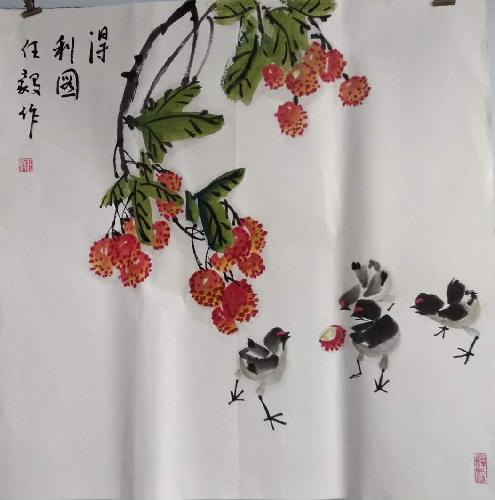 得
利图
任毅作